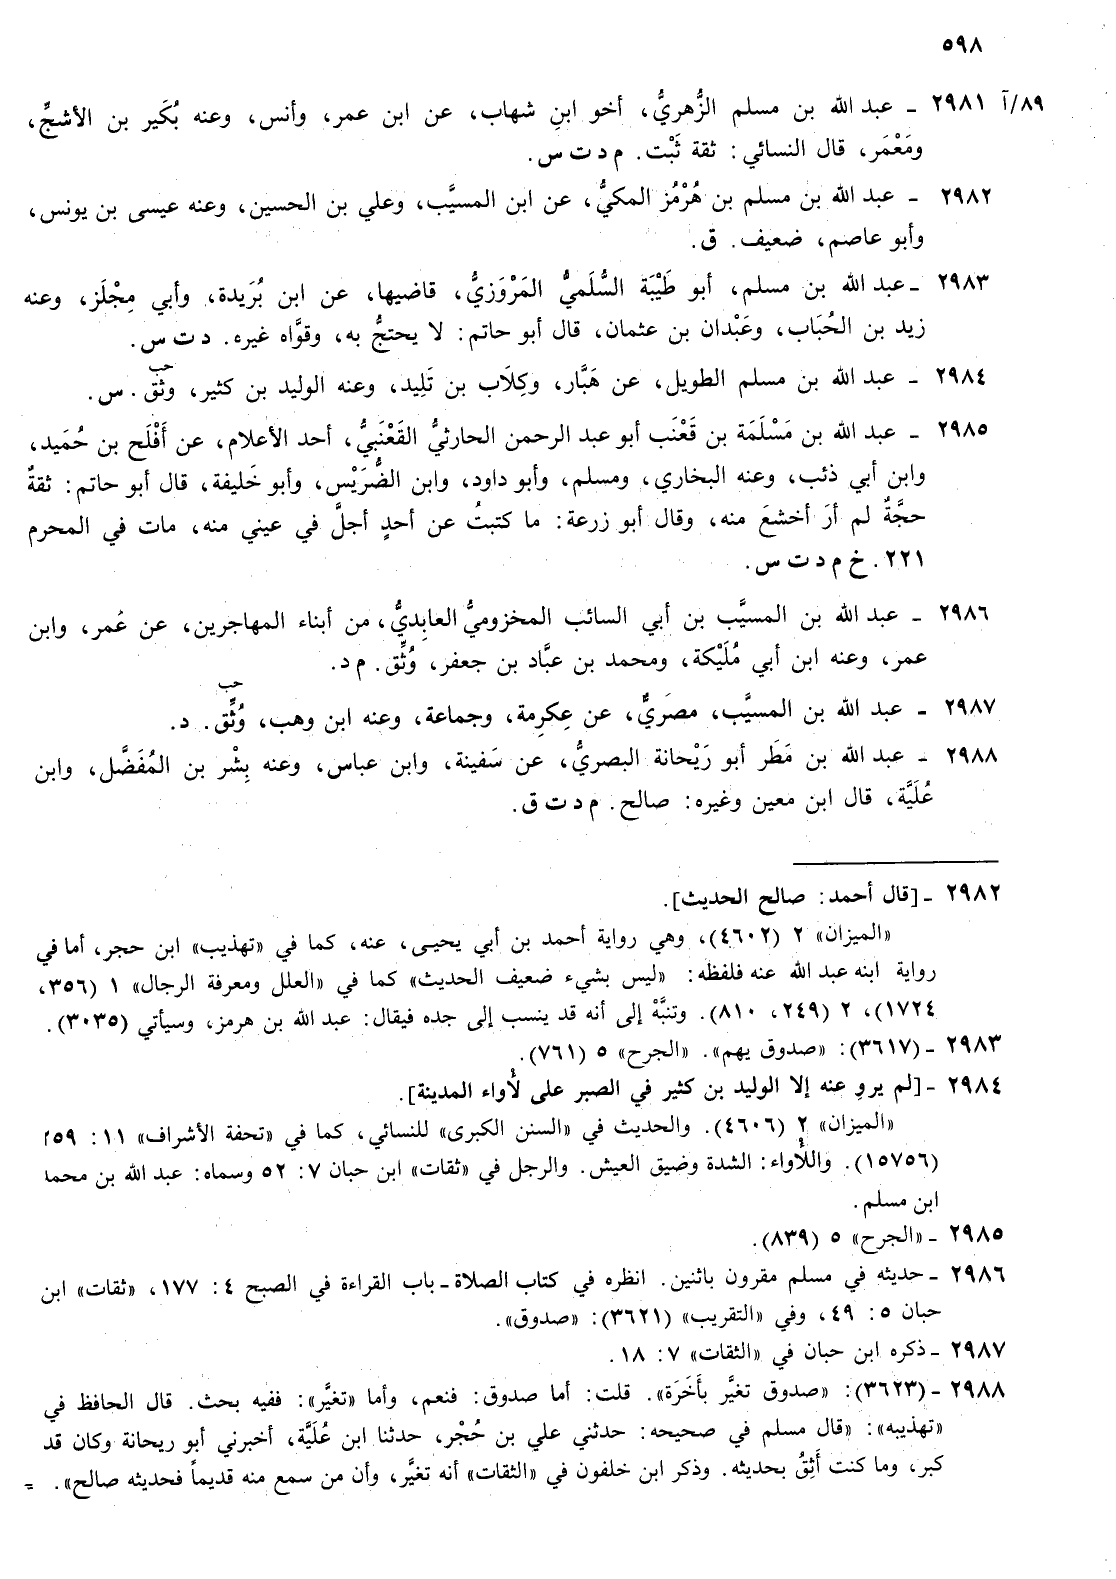 ٥٩٨
٨٩/آ ٢٩٨١ ـ عبد الله بن مسلم الزُّهريُّ، أخو ابنِ شهاب، عن ابن عمر، وأنس، وعنه بُكَير بن الأشجِّ،
ومَعْمَر، قال النسائي: ثقة ثَبْت. م د ت س.
٢٩٨٢ ـ عبد الله بن مسلم بن هُرْمُز المكيُّ، عن ابن المسيَّب، وعلي بن الحسين، وعنه عيسى بن يونس،
وأبو عاصم، ضعيف. ق.
٢٩٨٣ ـ عبد الله بن مسلم، أبو طَيْبَة السُّلَميُّ المَرْوَزيُّ، قاضيها، عن ابن بُرَيدة، وأبي مِجْلَز، وعنه
زيد بن الحُبَاب، وعَبْدان بن عثمان، قال أبو حاتم: لا يحتجُّ به، وقوَّاه غيره. د ت س.
حب
٢٩٨٤ ـ عبد الله بن مسلم الطويل، عن هَبَّار، وكِلَاب بن تَلِيد، وعنه الوليد بن كثير، وثّق. س.
٢٩٨٥ ـ عبد الله بن مَسْلَمة بن قَعْنَب أبو عبد الرحمن الحارثيُّ القَعْنَبيُّ، أحد الأعلام، عن أَفْلَح بن حُمَيد،
وابن أبي ذئب، وعنه البخاري، ومسلم، وأبو داود، وابن الضُّرَيْس، وأبو خَليفة، قال أبو حاتم: ثقةٌ
حجَّةٌ لم أرَ أخشعَ منه، وقال أبو زرعة: ما كتبتُ عن أحدٍ أجلَّ في عيني منه، مات في المحرم
٢٢١. خ م د ت س.
٢٩٨٦ ـ عبد الله بن المسيَّب بن أبي السائب المخزوميُّ العابِديُّ، من أبناء المهاجرين، عن عُمر، وابن
عمر، وعنه ابن أبي مُلَيْكة، ومحمد بن عبَّاد بن جعفر، وُثِّق. م د.
حب
٢٩٨٧ ـ عبد الله بن المسيَّب، مصَريٌّ، عن عِكرِمة، وجماعة، وعنه ابن وهب، وُثِّق. د.
٢٩٨٨ ـ عبد الله بن مَطَر أبو رَيْحانة البصريُّ، عن سَفينة، وابن عباس، وعنه بِشْر بن المُفَضَّل، وابن
عُلَيَّة، قال ابن معين وغيره: صالح. م د ت ق.
٢٩٨٢ ـ [قال أحمد: صالح الحديث].
«الميزان» ٢ (٤٦٠٢)، وهي رواية أحمد بن أبي يحيى، عنه، كما في «تهذيب» ابن حجر، أما في
رواية ابنه عبد الله عنه فلفظه: «ليس بشيء ضعيف الحديث» كما في «العلل ومعرفة الرجال» ١ (٣٥٦،
١٧٢٤)، ٢ (٢٤٩، ٨١٠). وتنبَّهْ إلى أنه قد ينسب إلى جده فيقال: عبد الله بن هرمز، وسيأتي (٣٠٣٥).
٢٩٨٣ ـ (٣٦١٧): «صدوق يهم». «الجرح» ٥ (٧٦١).
٢٩٨٤ ـ [لم يروِ عنه إلا الوليد بن كثير في الصبر على لأْواء المدينة].
«الميزان» ٢ (٤٦٠٦). والحديث في «السنن الكبرى» للنسائي، كما في «تحفة الأشراف» ١١: ٢٥٩
(١٥٧٥٦). واللَّأْواء: الشدة وضيق العيش. والرجل في «ثقات» ابن حبان ٧: ٥٢ وسماه: عبد الله بن محمد
ابن مسلم.
٢٩٨٥ ـ «الجرح» ٥ (٨٣٩).
٢٩٨٦ ـ حديثه في مسلم مقرون باثنين. انظره في كتاب الصلاة ـ باب القراءة في الصبح ٤: ١٧٧، «ثقات» ابن
حبان ٥: ٤٩، وفي «التقريب» (٣٦٢١): «صدوق».
٢٩٨٧ ـ ذكره ابن حبان في «الثقات» ٧: ١٨.
٢٩٨٨ ـ (٣٦٢٣): «صدوق تغيَّر بأَخَرَة». قلت: أما صدوق: فنعم، وأما «تغيَّر»: ففيه بحث. قال الحافظ في
«تهذيبه»: «قال مسلم في صحيحه: حدثني علي بن حُجْر، حدثنا ابن عُلَيَّة، أخبرني أبو ريحانة وكان قد
كبر، وما كنت أَثِقُ بحديثه. وذكر ابن خلفون في «الثقات» أنه تغيَّر، وأن من سمع منه قديماً فحديثه صالح». =